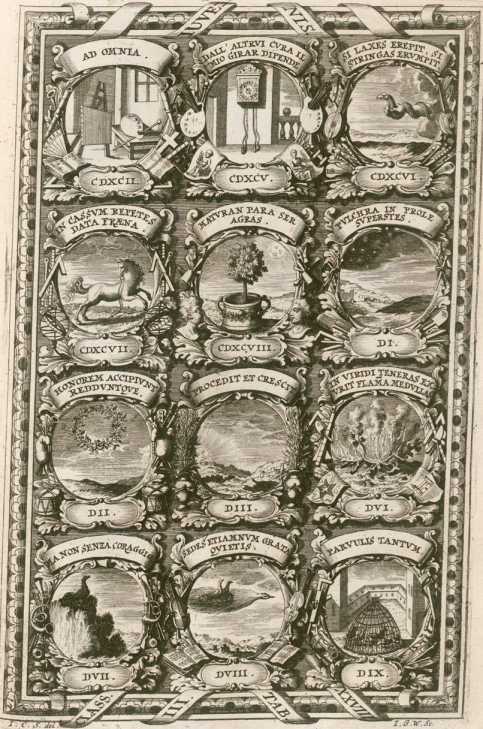 IUVE NIS
AD OMNIA.
DALL' ALTRVI CVRA IL
MIO GIRAR DIPENDE
SI LAXES EREPIT. SI
STRINGAS ERVMPIT
CDXCII.
CDXCV.
CDXCVI.
IN CASSVM REPETES
DATA FRÆNA.
MATURAN PARA SER
AGRAS.
PVLCHRA IN PROLE
SVPERSTES.
CDXCVII.
CDXCVIII.
DI.
HONOREM ACCIPIVNT
REDDVNTQVE.
PROCEDIT ET CRESCIT
IN VIRIDI TENERAS EX
VRIT FLAMA MEDVLLAS
DII.
DIII.
DVI.
MA NON SENZA CORAGGIO
SEDES ETIAMNVM GRATA
QVIETIS.
PARVULIS TANTVM
DVII.
DVIII.
DIX.
CLASS. III TAB.
I. C. S. del.
I. G. W. Sc.